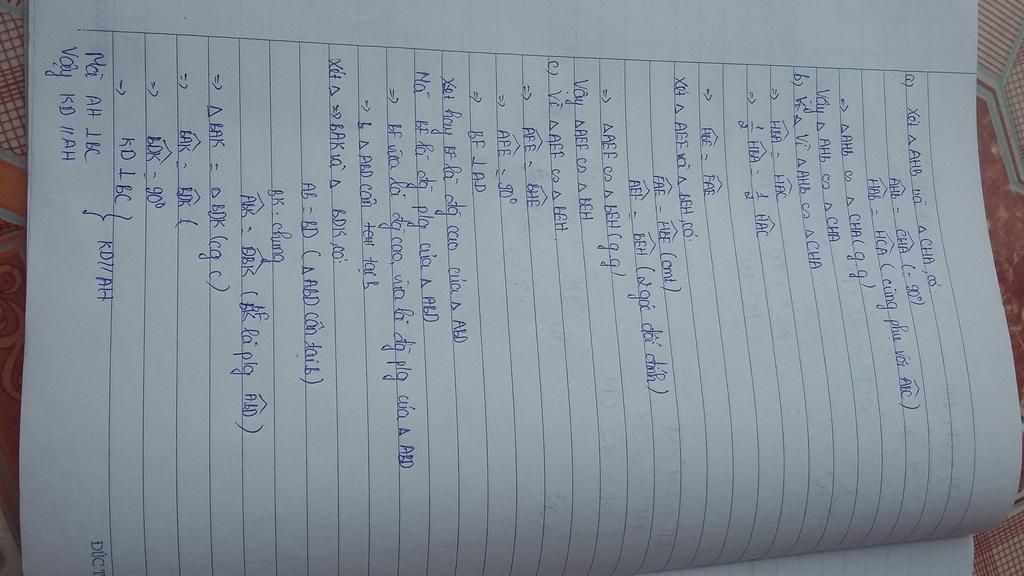 a) Xét △AHB và △CHA, có
AHB = CHA (= 90°)
HAB = HCA (cùng phụ với ABC)
=> △AHB ∽ △CHA (g.g)
Vậy △AHB ∽ △CHA
b) Vì △AHB ∽ △CHA
=> HBA = HAC
=> 1/2 HBA = 1/2 HAC
=> HBE = FAE
Xét △AEF và △BEH, có
FAE = HBE (cmt)
AEF = BEH (2 góc đối đỉnh)
=> △AEF ∽ △BEH (g.g)
Vậy △AEF ∽ △BEH
c) Vì △AEF ∽ △BEH
=> AFE = BHE
=> AFE = 90°
=> BF ⊥ AD
hay BF là đg cao của △ABD
Mà BF là đg p/g của △ABD
=> BF vừa là đg cao, vừa là đg p/g của △ABD
=> △ABD cân tại B
Xét △BAK và △BDK, có
AB = BD (△ABD cân tại B)
BK: chung
ABK = DBK (BF là p/g ABD)
=> △BAK = △BDK (c g c)
=> BAK = BDK (
=> BDK = 90°
=> KD ⊥ BC
Mà AH ⊥ BC } KD//AH
Vậy KD//AH